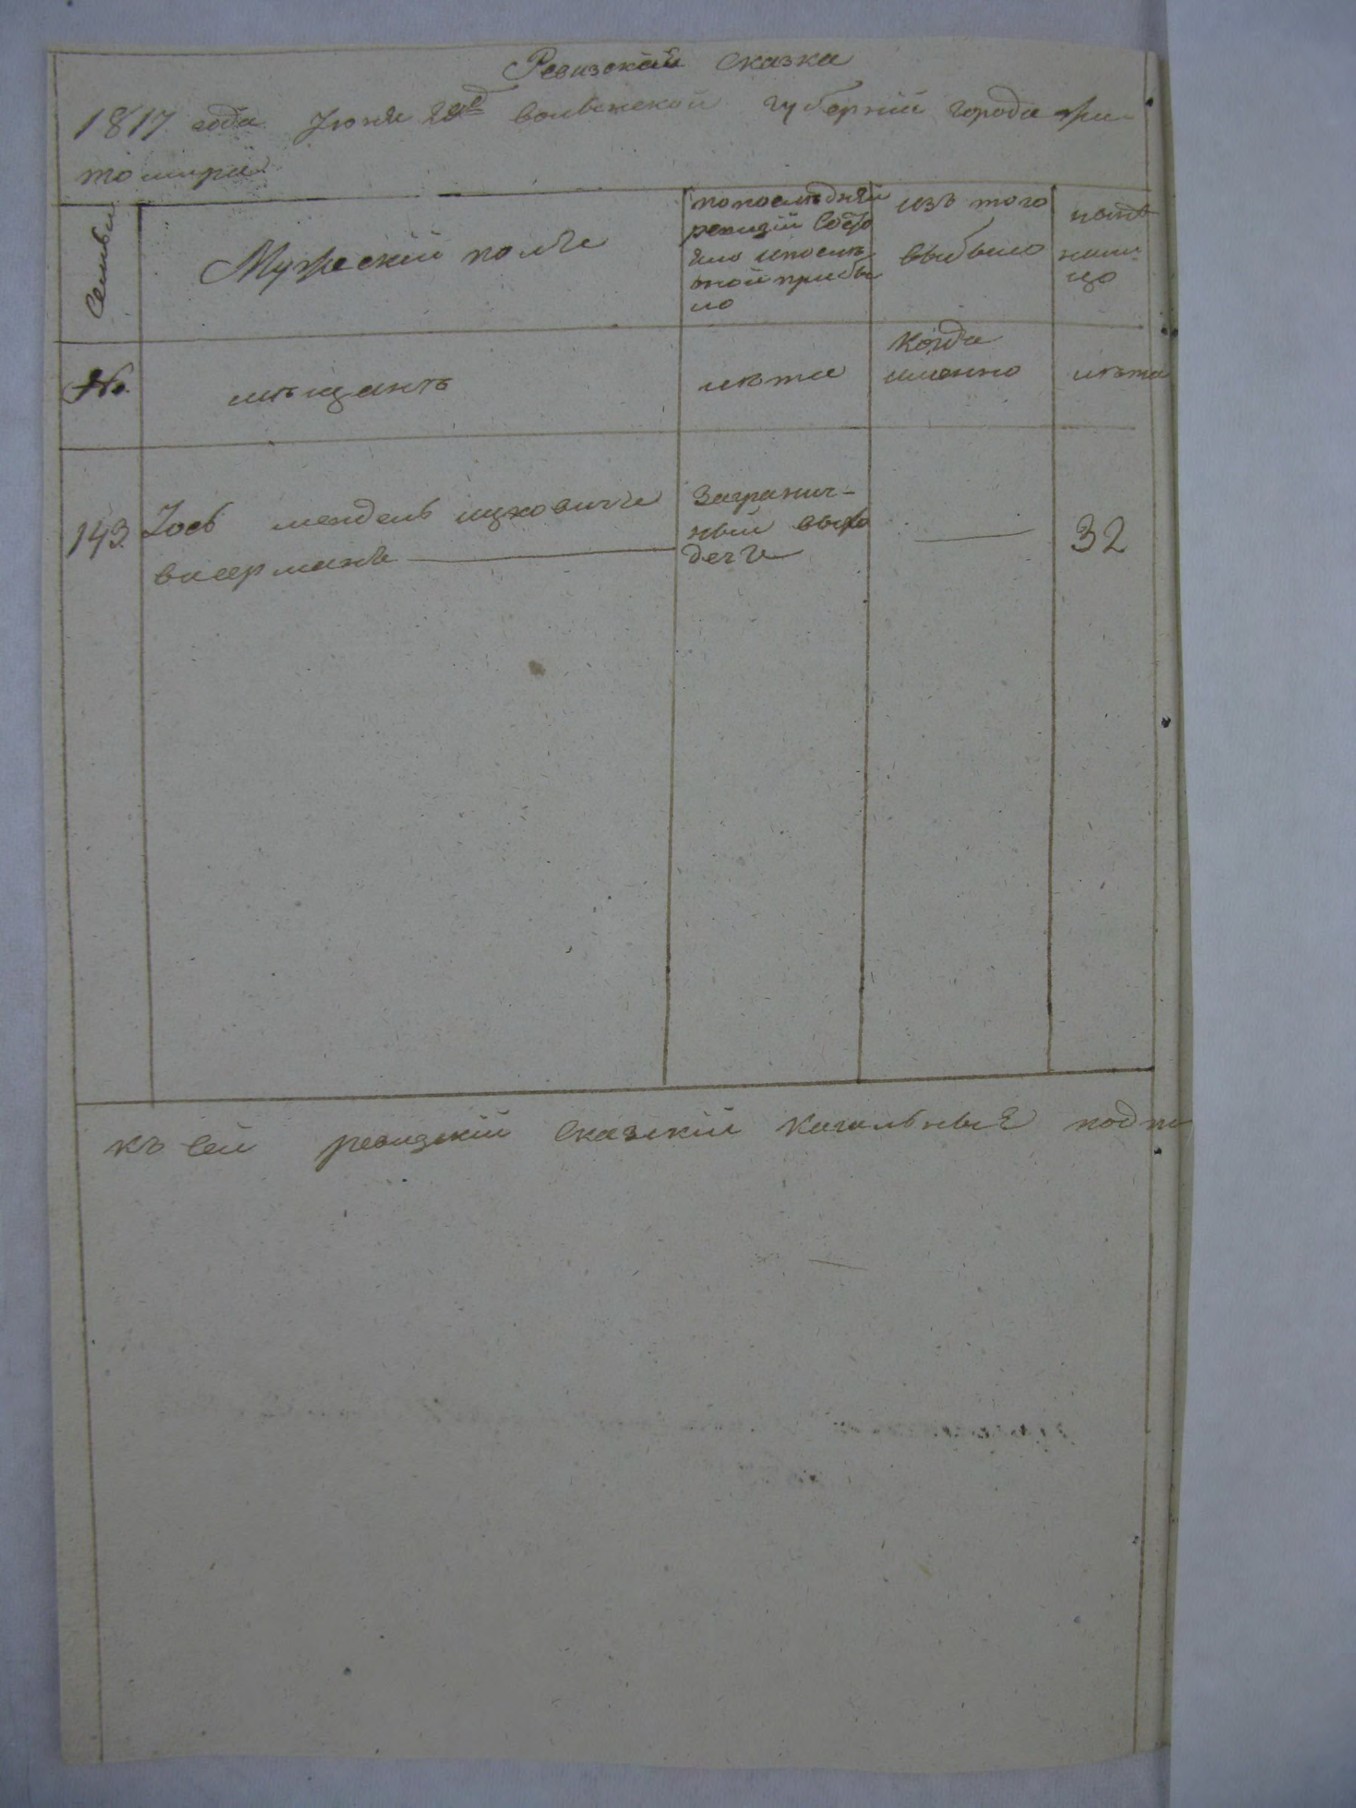 Ревизская сказка
1817 года Июня волынской губерний города жи-
томира
Семьи
Мужескій полъ
попоследней
ревизій состо
яло ипосле
оной прибы
ло
изъ того
выбыло
ныне
нали-
цо
№.
мещанъ
лета
когда
именно
лета
143. Іось мендель ицковичъ
васерманъ
заграnич-
ный выхо
децъ
32
къ сей ревизскій сказкій кагальные подпи